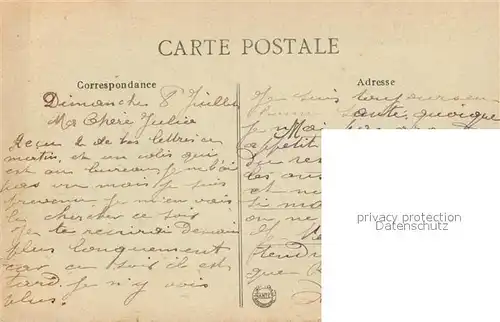 CARTE POSTALE
Correspondance
Adresse
Dimanche 8 Juille
Ma Chere Julia
Reçu de tes lettres ce
matin, et un colis qui
est au bureau je ne l'ai
pas vu mais je suis
prevenu je m'en vais
la chercher ce soir
Je te recrirai Demain
plus longuement
car ce soir il est
tard. Je n'y vois
plus.
Je suis toujours en
bonne santé, quoique
je n'ai
appetit
du re
les au
et n
si m
on ne
tendr
que
privacy protection
Datenschutz